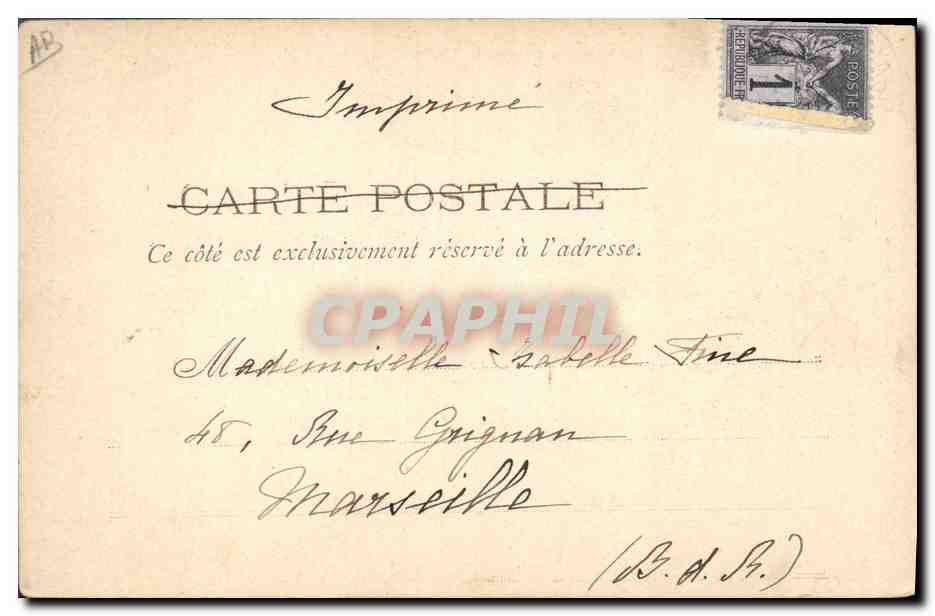 AP
REPUBLIQUE FR
POSTE
1
Imprimé
CARTE POSTALE
Ce côté est exclusivement réservé à l'adresse.
CPAPHIL
Mademoiselle Isabelle Fine
48, Rue Grignan
Marseille
(B. d. R.)